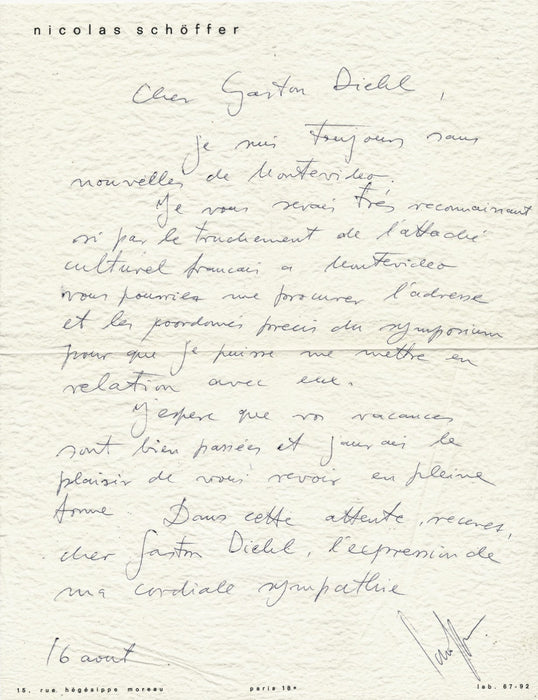 nicolas schöffer
Cher Gaston Diehl,
Je suis toujours sans
nouvelles de Montevideo.
Je vous serais très reconnaissant
si par le truchement de l'attaché
culturel francais a Montevideo
vous pourriez me procurer l'adresse
et les coordonés precis du symposium
pour que je puisse me mettre en
relation avec eux.
J'espere que vos vacances
sont bien passées et j'aurais le
plaisir de vous revoir en pleine
forme. Dans cette attente, recevez,
cher Gaston Diehl, l'expression de
ma cordiale sympathie
16 aout
15, rue hégésippe moreau paris 18e lab. 67-92